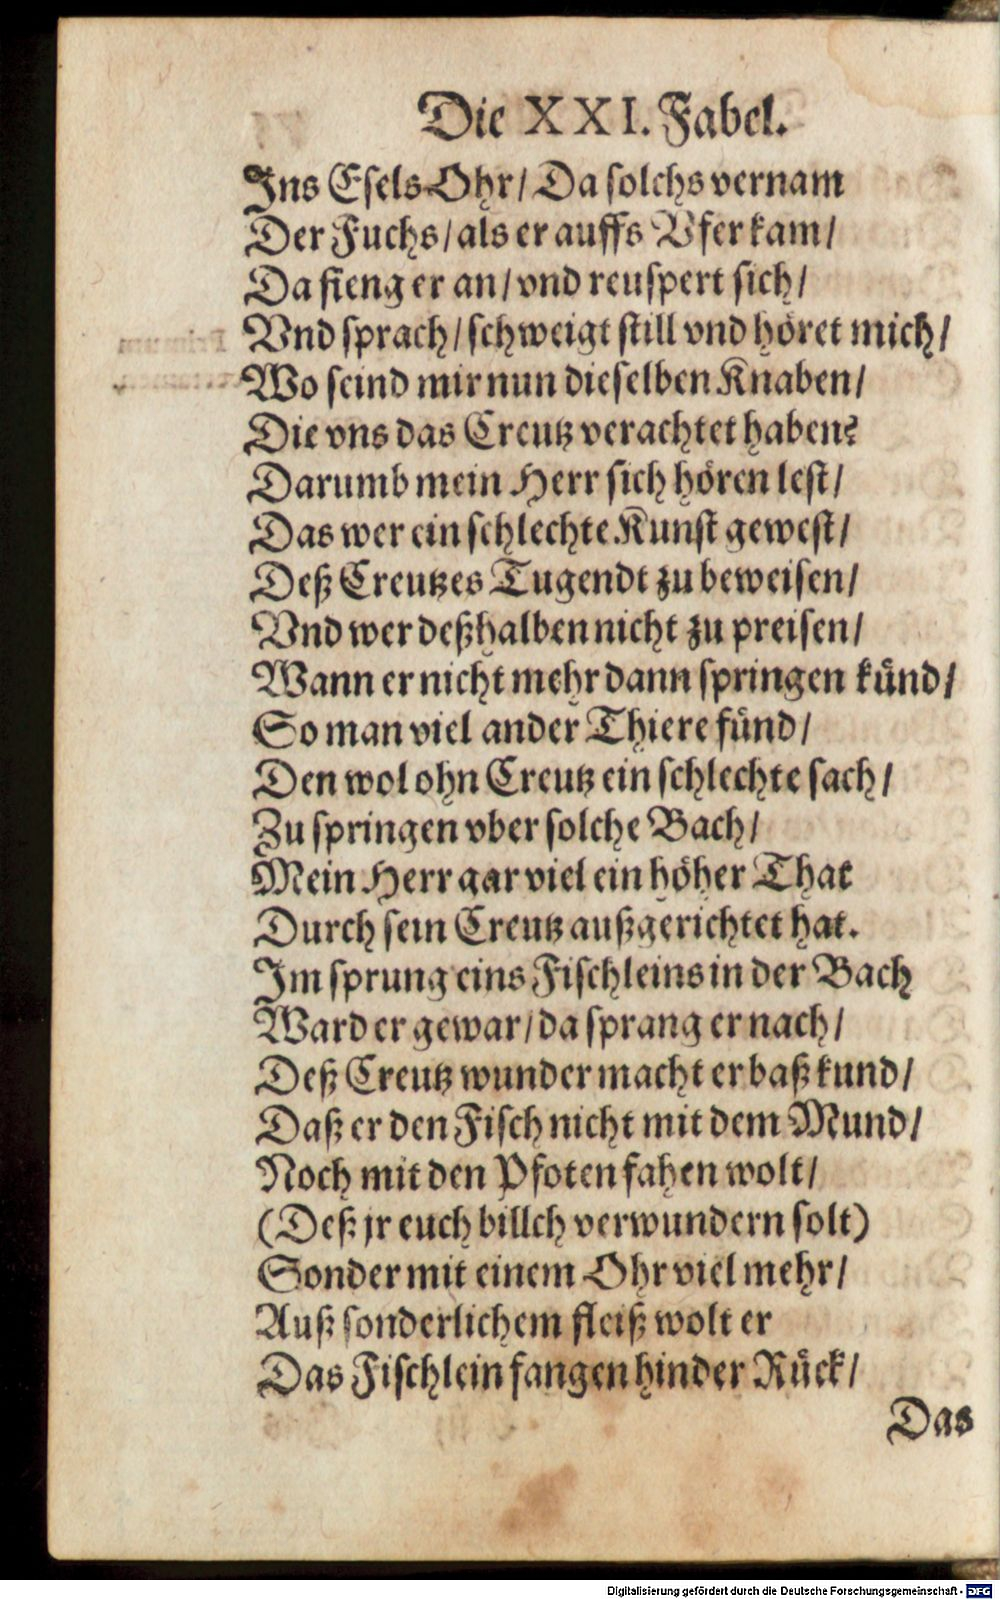 Die XXI. Fabel.
Ins Esels Ohr/ Da solchs vernam
Der Fuchs/ als er auffs Vfer kam/
Da fieng er an/ vnd reuspert sich/
Vnd sprach/ schweigt still vnd höret mich/
Wo seind mir nun dieselben Knaben/
Die vns das Creutz verachtet haben?
Darumb mein Herr sich hören lest/
Das wer ein schlechte Kunst gewest/
Deß Creutzes Tugendt zu beweisen/
Vnd wer deßhalben nicht zu preisen/
Wann er nicht mehr dann springen künd/
So man viel ander Thiere fünd/
Den wol ohn Creutz ein schlechte sach/
Zu springen vber solche Bach/
Mein Herr gar viel ein höher That
Durch sein Creutz außgerichtet hat.
Im sprung eins Fischleins in der Bach
Ward er gewar/ da sprang er nach/
Deß Creutz wunder macht er baß kund/
Daß er den Fisch nicht mit dem Mund/
Noch mit den Pfoten fahen wolt/
(Deß jr euch billch verwundern solt)
Sonder mit einem Ohr viel mehr/
Auß sonderlichem fleiß wolt er
Das Fischlein fangen hinder Rück/
Das
Digitalisierung gefördert durch die Deutsche Forschungsgemeinschaft - DFG